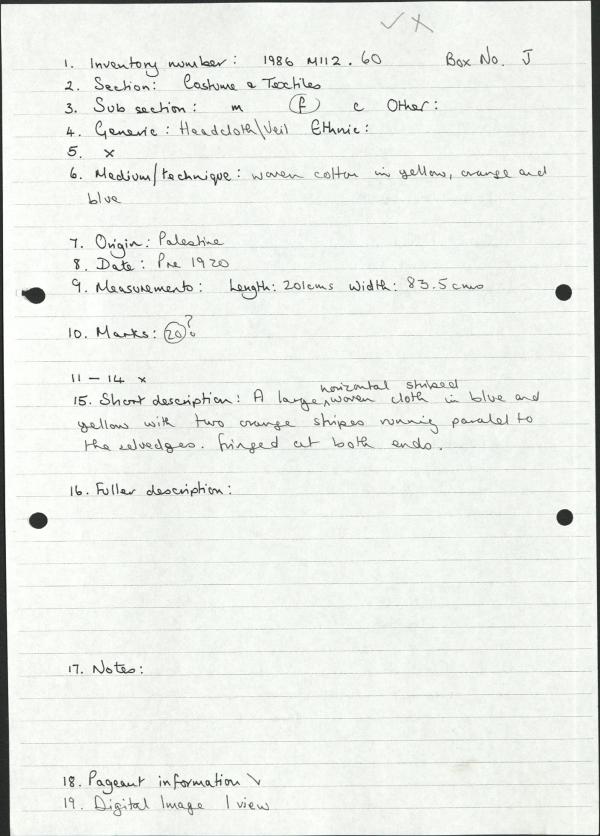 ✓ X
1. Inventory number: 1986 M112.60 Box No. J
2. Section: Costume & Textiles
3. Sub section: m (f) c Other:
4. Generic: Headcloth/Veil Ethnic:
5. x
6. Medium/technique: woven cotton in yellow, orange and
blue
7. Origin: Palestine
8. Date: Pre 1920
9. Measurements: Length: 201cms Width: 83.5cms
10. Marks: (20)?
11 – 14 x
horizontal striped
15. Short description: A large ^ woven cloth in blue and
yellow with two orange stripes running paralel to
the selvedges. fringed at both ends.
16. Fuller description:
17. Notes:
18. Pageant information \
19. Digital Image 1 view